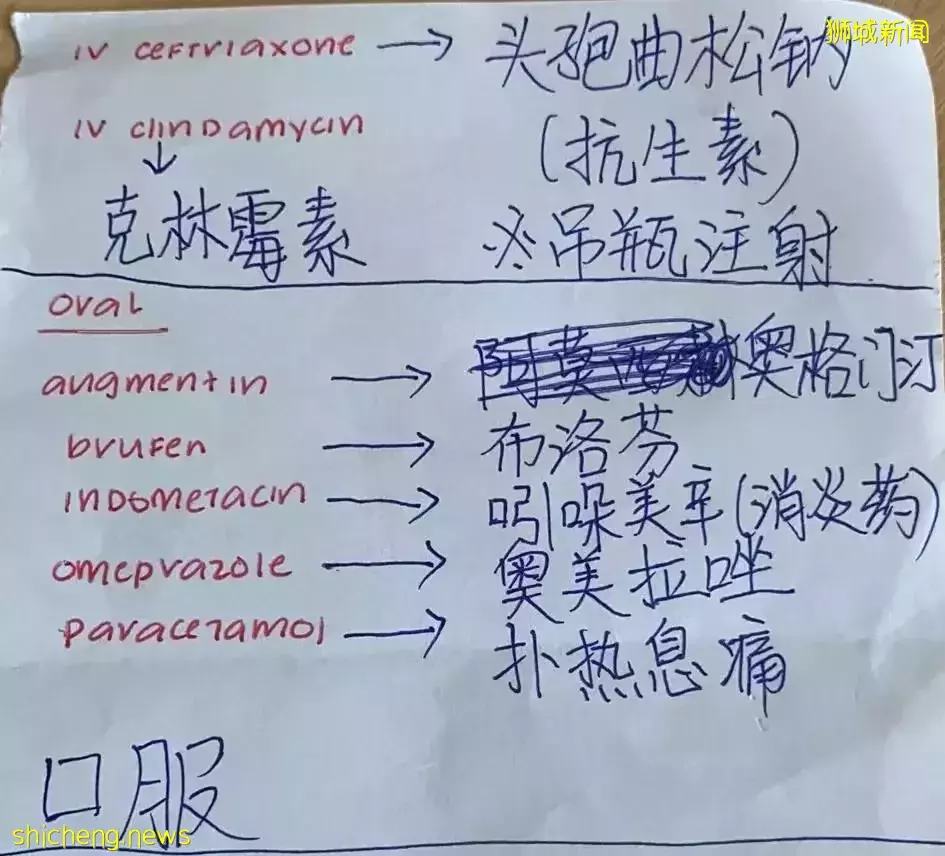 狮城新闻
IV ceftriaxone → 头孢曲松钠
IV clindamycin (抗生素)
↓
克林霉素 ※吊瓶注射
oral
augmentin → 奥格门汀
brufen → 布洛芬
indometacin → 吲哚美辛(消炎药)
omeprazole → 奥美拉唑
paracetamol → 扑热息痛
口服
shicheng.news